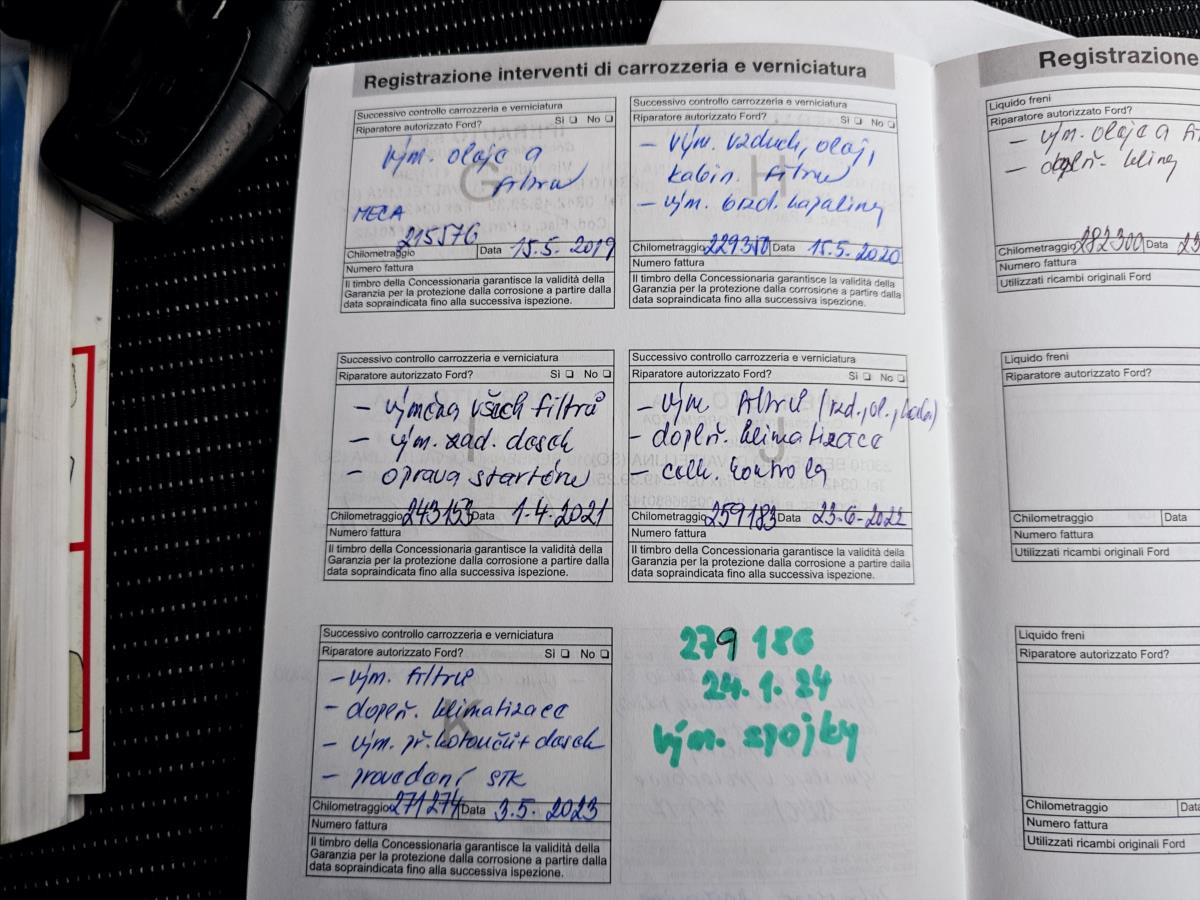 Registrazione interventi di carrozzeria e verniciatura
Successivo controllo carrozzeria e verniciatura
Riparatore autorizzato Ford?
Sì ❏ No ❏
Vým. oleje a
filtru
MECA
Chilometraggio 215576 Data 15.5.2019
Numero fattura
Il timbro della Concessionaria garantisce la validità della
Garanzia per la protezione dalla corrosione a partire dalla
data sopraindicata fino alla successiva ispezione.
Successivo controllo carrozzeria e verniciatura
Riparatore autorizzato Ford?
Sì ❏ No ❏
- vým. vzduch, olej,
kabin. filtru
- vým. brzd. kapaliny
Chilometraggio Data 15.5.2020
Numero fattura
Il timbro della Concessionaria garantisce la validità della
Garanzia per la protezione dalla corrosione a partire dalla
data sopraindicata fino alla successiva ispezione.
Successivo controllo carrozzeria e verniciatura
Riparatore autorizzato Ford?
Sì ❏ No ❏
- výměna všech filtrů
- vým. zad. desek
- oprava startéru
Chilometraggio 243153 Data 1.4.2021
Numero fattura
Il timbro della Concessionaria garantisce la validità della
Garanzia per la protezione dalla corrosione a partire dalla
data sopraindicata fino alla successiva ispezione.
Successivo controllo carrozzeria e verniciatura
Riparatore autorizzato Ford?
Sì ❏ No ❏
- vým. filtrů (vzd., ol., kabin)
- doplň. klimatizace
- celk. kontrola
Chilometraggio 259183 Data 23.6.2022
Numero fattura
Il timbro della Concessionaria garantisce la validità della
Garanzia per la protezione dalla corrosione a partire dalla
data sopraindicata fino alla successiva ispezione.
Successivo controllo carrozzeria e verniciatura
Riparatore autorizzato Ford?
Sì ❏ No ❏
- vým. filtrů
- doplň. klimatizace
- vým. př. kotoučů + desek
- provedení STK
Chilometraggio 271274 Data 3.5.2023
Numero fattura
Il timbro della Concessionaria garantisce la validità della
Garanzia per la protezione dalla corrosione a partire dalla
data sopraindicata fino alla successiva ispezione.
279 186
24.1.24
Vým. spojky
Registrazione
Liquido freni
Riparatore autorizzato Ford?
- vým. oleje a
- doplň. klimy
Chilometraggio 282300 Data
Numero fattura
Utilizzati ricambi originali Ford
Liquido freni
Riparatore autorizzato Ford?
Chilometraggio Data
Numero fattura
Utilizzati ricambi originali Ford
Liquido freni
Riparatore autorizzato Ford?
Chilometraggio
Numero fattura
Utilizzati ricambi originali Ford